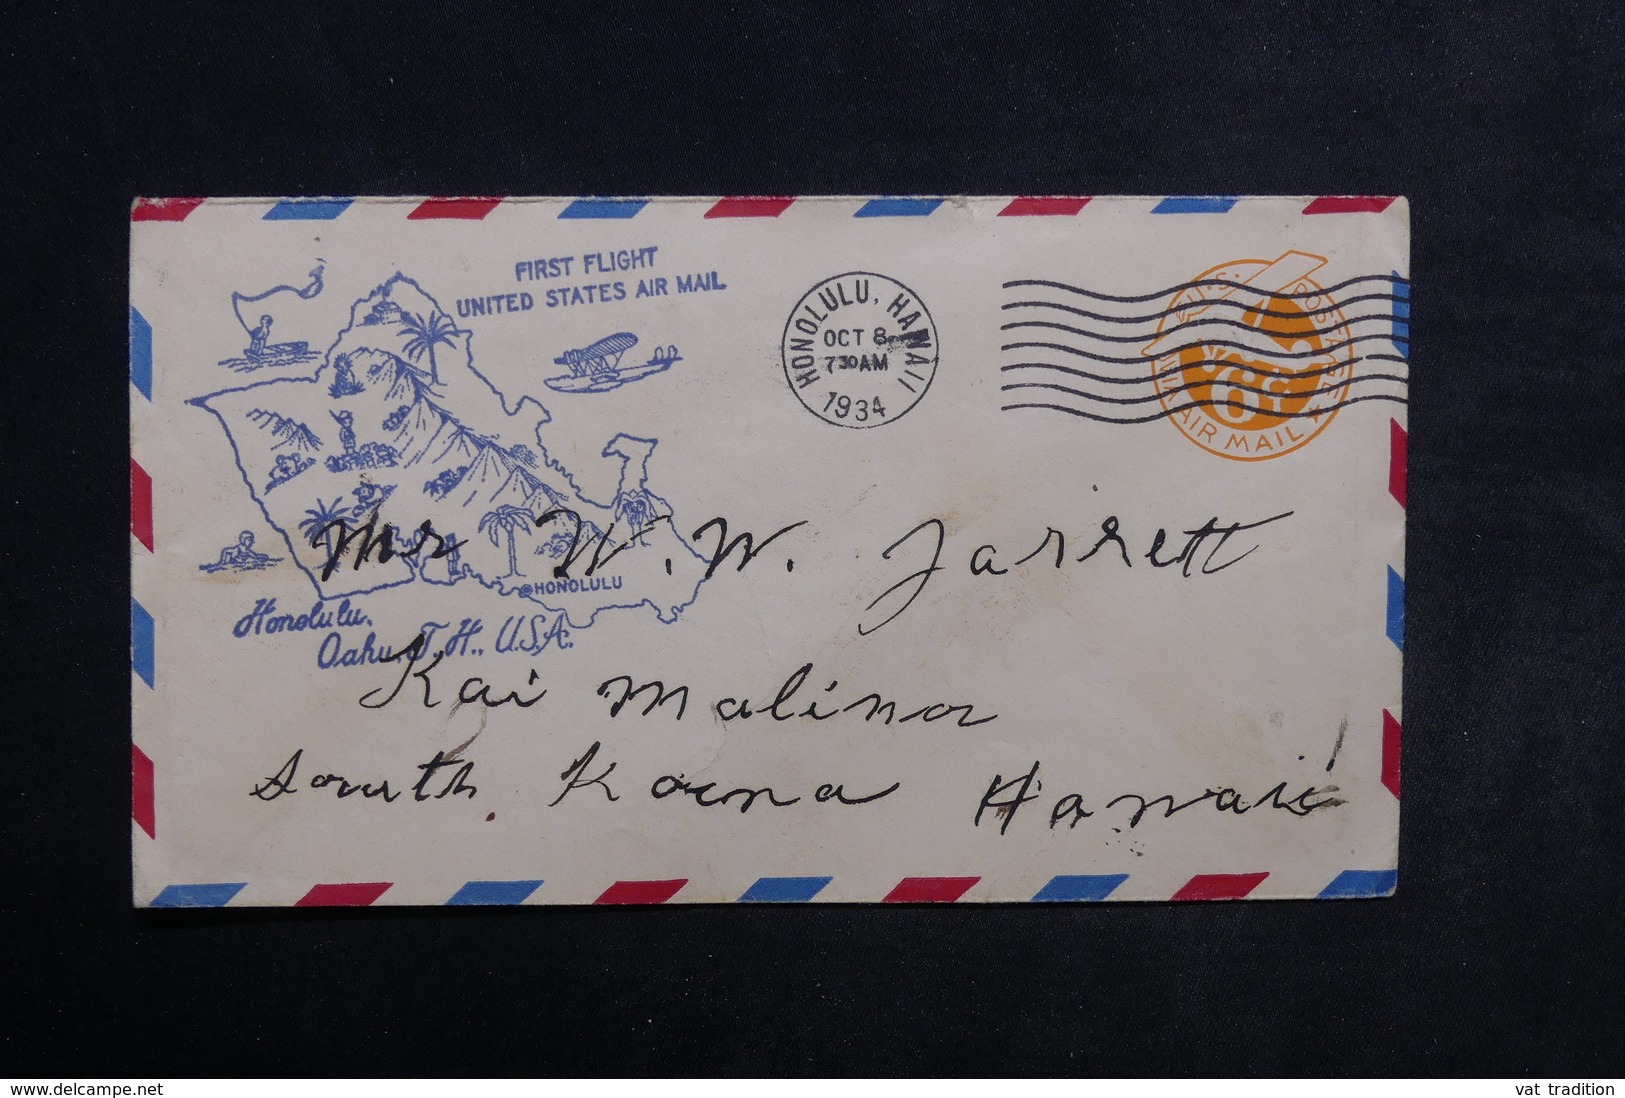 FIRST FLIGHT
UNITED STATES AIR MAIL
HONOLULU, HAWAII
OCT 8
7 30 AM
1934
U.S. POSTAGE
6¢
VIA AIR MAIL
HONOLULU
Honolulu,
Oahu, T.H., U.S.A.
Mr W. W. Jarrett
Kai Malino
South Kona Hawaii
www.delcampe.net
vat_tradition